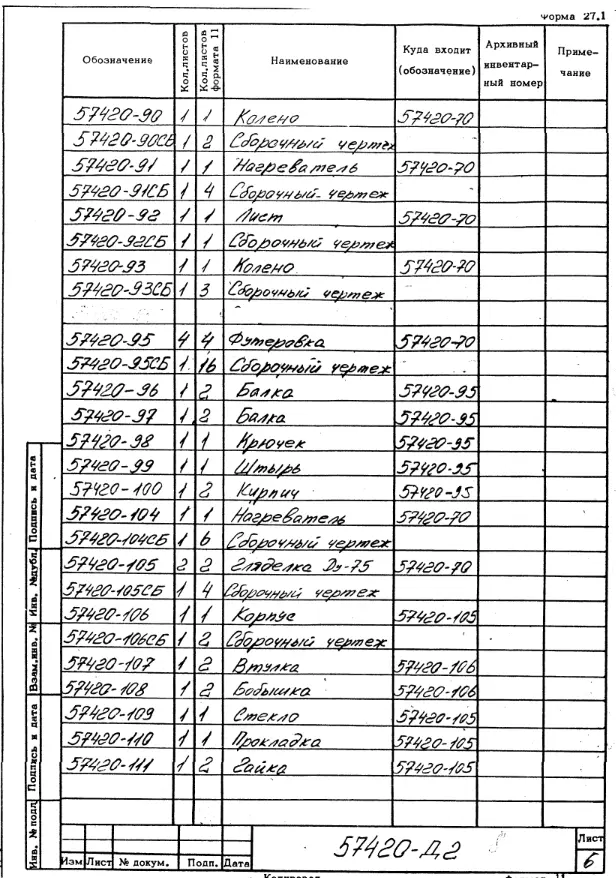 Форма 27.1
Обозначение Кол.листов Кол.листов формата 11 Наименование Куда входит (обозначение) Архивный инвентарный номер Примечание
57420-90 1 1 Колено 57420-70
57420-90СБ 1 2 Сборочный чертеж
57420-91 1 1 Нагреватель 57420-70
57420-91СБ 1 4 Сборочный чертеж
57420-92 1 1 Лист 57420-70
57420-92СБ 1 1 Сборочный чертеж
57420-93 1 1 Колено 57420-70
57420-93СБ 1 3 Сборочный чертеж
57420-95 4 4 Футеровка 57420-70
57420-95СБ 1 16 Сборочный чертеж
57420-96 1 2 Балка 57420-95
57420-97 1 2 Балка 57420-95
57420-98 1 1 Крючек 57420-95
57420-99 1 1 Штырь 57420-95
57420-100 1 2 Кирпич 57420-95
57420-104 1 1 Нагреватель 57420-70
57420-104СБ 1 6 Сборочный чертеж
57420-105 2 2 Гляделка Ду-75 57420-70
57420-105СБ 1 4 Сборочный чертеж
57420-106 1 1 Корпус 57420-105
57420-106СБ 1 2 Сборочный чертеж
57420-107 1 2 Втулка 57420-106
57420-108 1 2 Бобышка 57420-106
57420-109 1 1 Стекло 57420-105
57420-110 1 1 Прокладка 57420-105
57420-111 1 2 Гайка 57420-105
Подпись и дата
Инв. №дубл.
Взам.инв. №
Подпись и дата
Инв. №подл
57420-Д2
Лист
6
Изм Лист № докум. Подп. Дата
Копировал